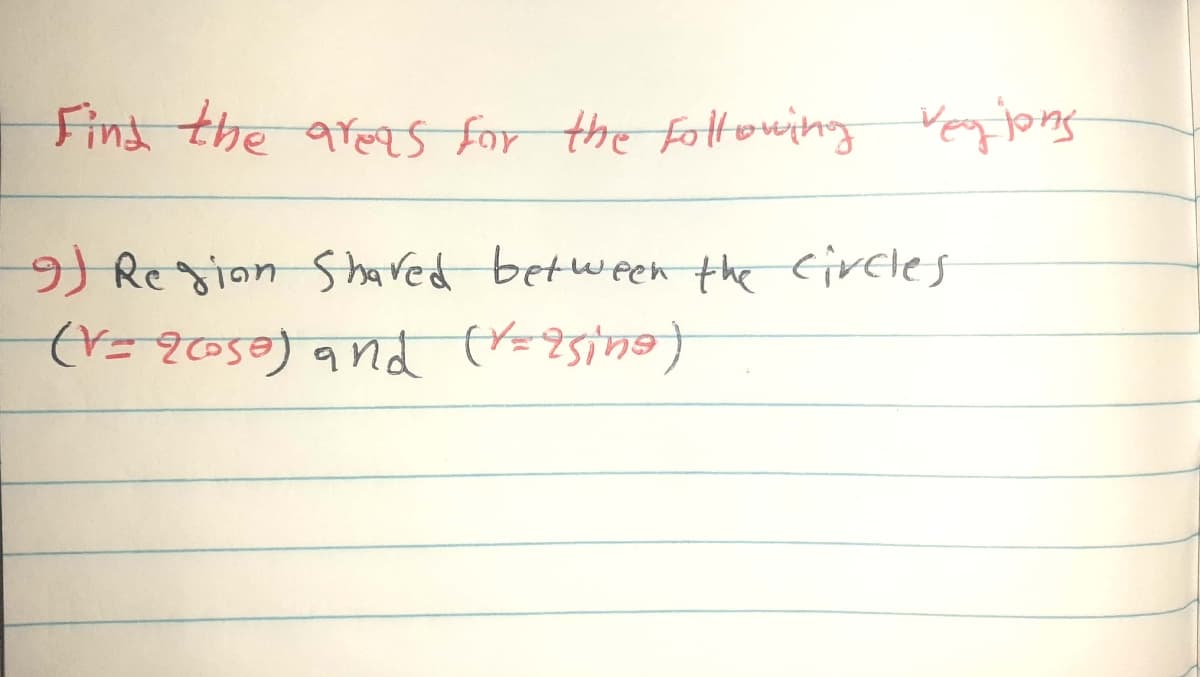 Find the areas for the following regions
9) Region Shared between the circles
(r= 2cosθ) and (r=2sinθ)